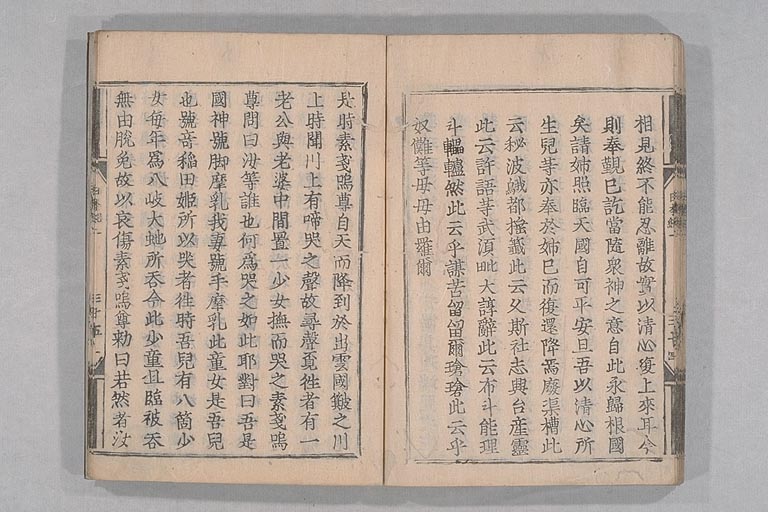 相見終不能忍離故實以清心復上來耳今
則奉覲已訖當隨衆神之意自此永歸根國
矣請姉照臨天國自可平安且吾以清心所
生兒等亦奉於姉已而復還降焉廢渠槽此
云秘波鵝都捶籤此云久斯社志興台産靈
此云許語等武湏毗大諄辭此云布斗能理
斗轠轤然此云乎謀苦留留爾瑲瑲此云乎
奴儺等母母由羅爾
是時素戔嗚尊自天而降到於出雲國簸之川
上時聞川上有啼哭之聲故尋聲覓徃者有一
老公與老婆中間置一少女撫而哭之素戔嗚
尊問曰汝等誰也何爲哭之如此耶對曰吾是
國神號脚摩乳我妻號手摩乳此童女是吾兒
也號奇稲田姫所以哭者徃時吾兒有八箇少
女每年爲八岐大虵所吞今此少童且臨被吞
無由脫免故以哀傷素戔嗚尊勅曰若然者汝